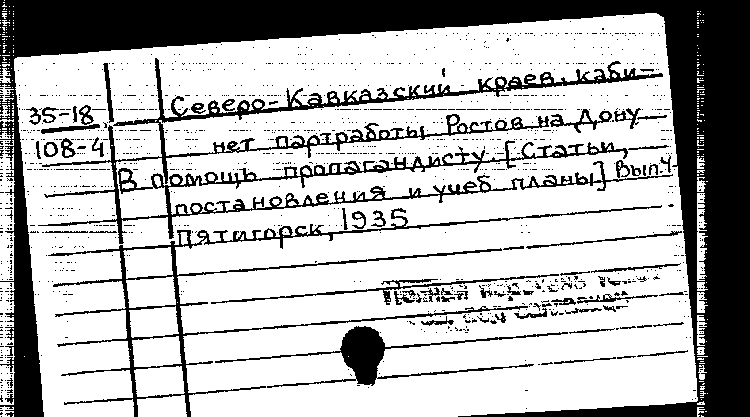 35-18
108-4
Северо-Кавказский краев. каби-
нет партработы Ростов на Дону
В помощь пропагандисту. [Статьи,
постановления и учеб планы] Вып.4
Пятигорск, 1935
Полный перечень